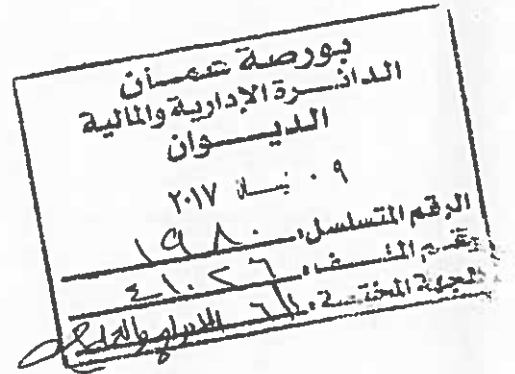 بورصة عمان
الدائرة الإدارية والمالية
الديوان
٠٩ نيسان ٢٠١٧
الرقم المتسلسل: ١٩٨٠
رقم الملف: ٤١٠٢٦
الجهة المختصة: